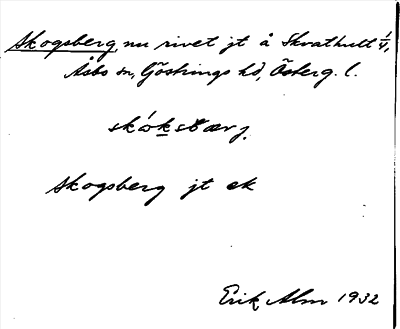 Skogsberg, nu rivet jt å Skrathult 1/4,
Åsbo sn, Göstrings hd, Österg. l.
Skogsberg jt ek
Erik Alm 1932